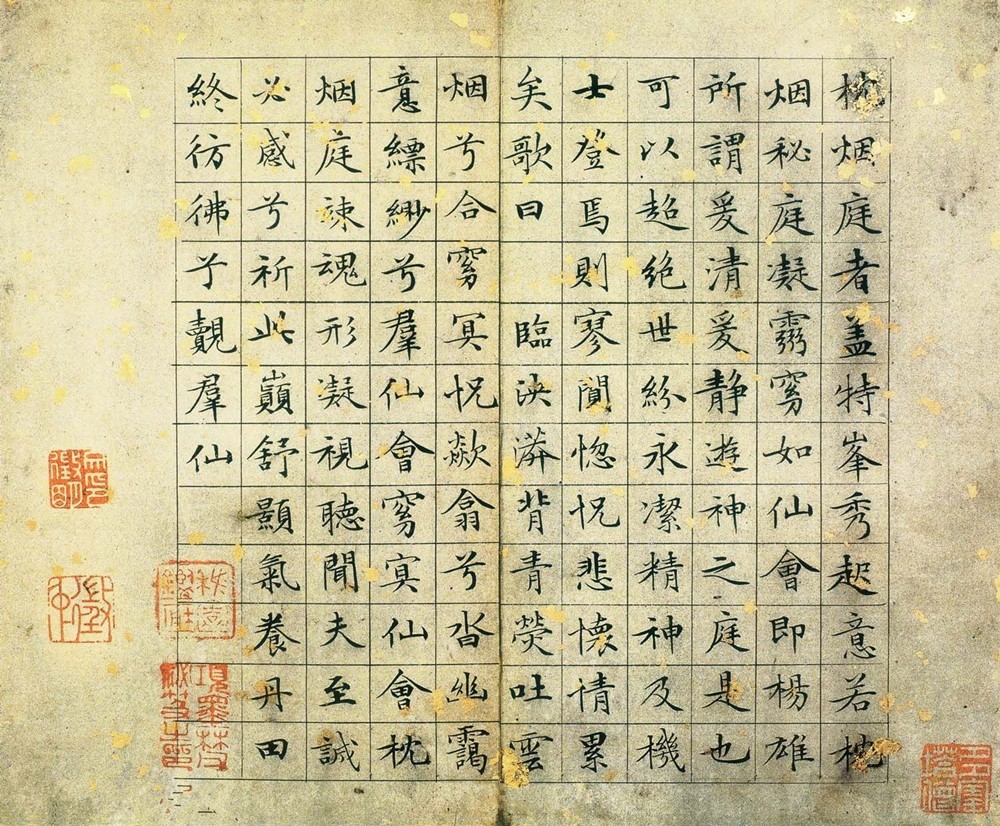 枕烟庭者盖特峯秀起意若枕
烟秘庭凝靈窅如仙會即楊雄
所謂爰清爰静遊神之庭是也
可以超絶世紛永潔精神及機
士登焉則寥闃惚怳悲懷情累
矣歌曰 臨泱漭背青熒吐雲
烟兮合窅冥怳欻翕兮沓幽靄
意縹緲兮羣仙會窅冥仙會枕
烟庭竦魂形凝視聽聞夫至誠
必感兮祈此巔舒顥氣養丹田
終彷彿兮覿羣仙
項墨林父秘笈之印